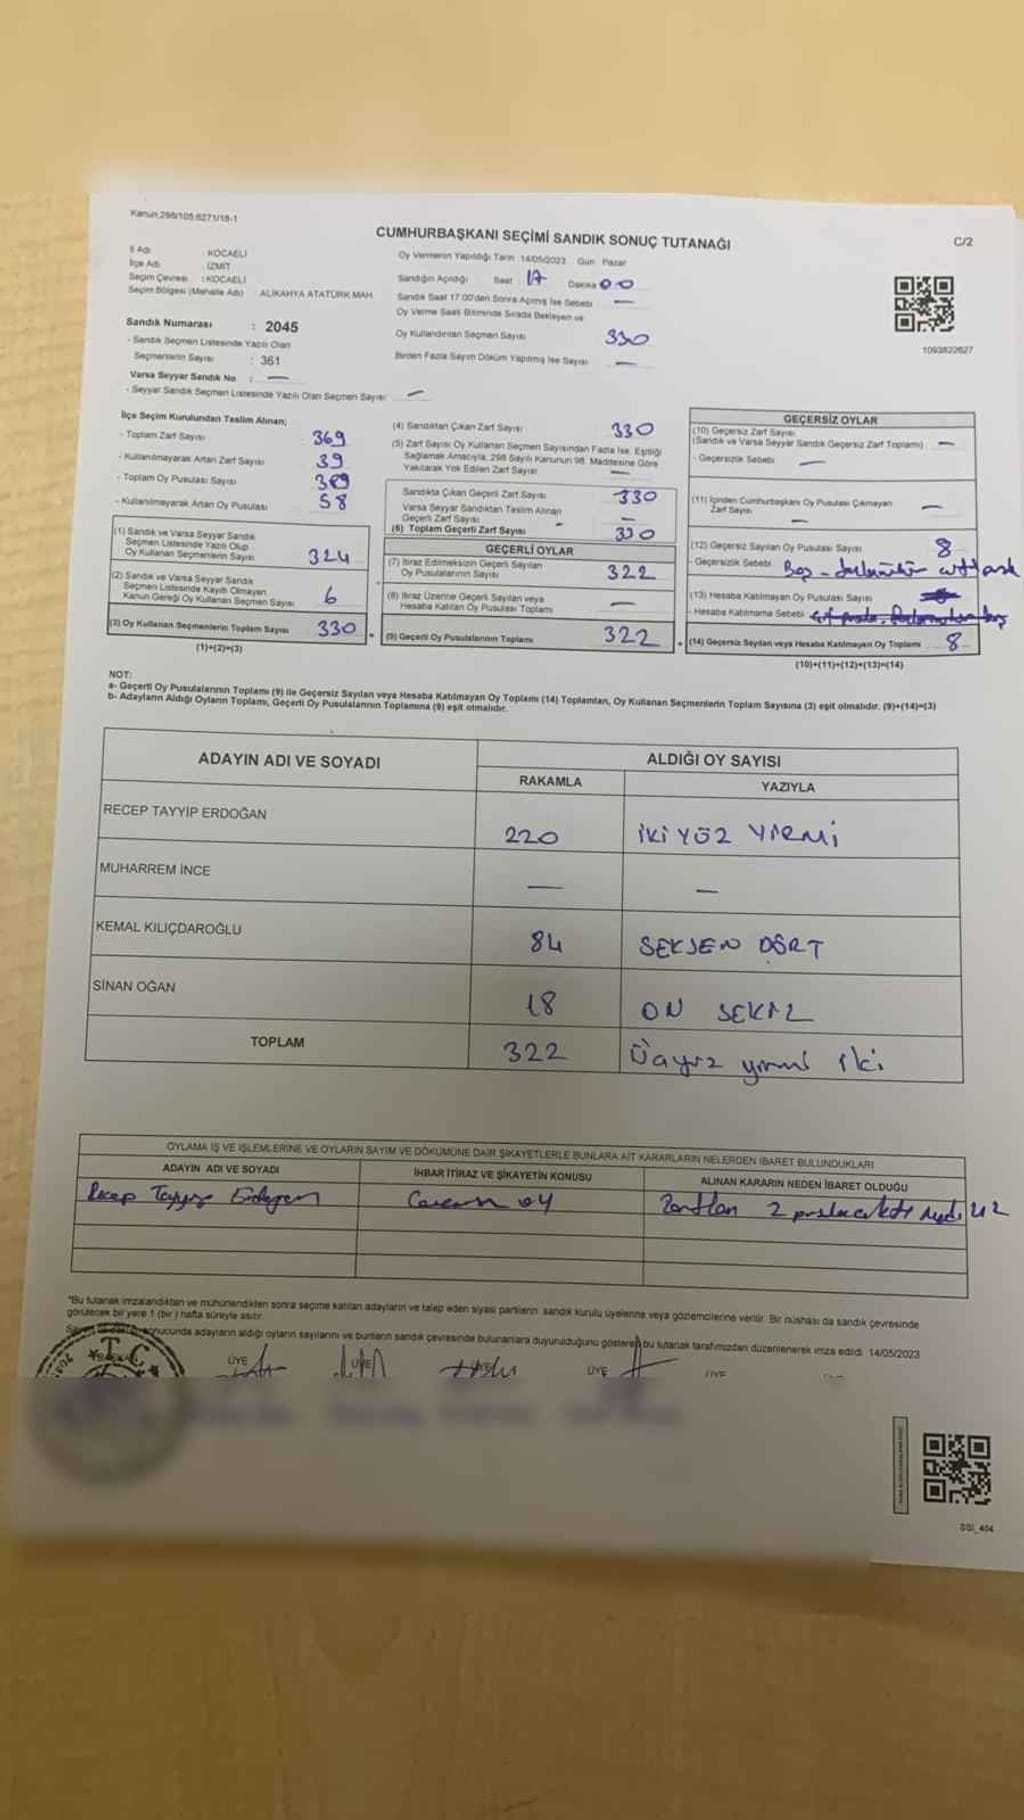 Kanun 298/105 6271/18-1
CUMHURBAŞKANI SEÇİMİ SANDIK SONUÇ TUTANAĞI
C/2
İl Adı : KOCAELİ
İlçe Adı : İZMİT
Seçim Çevresi : KOCAELİ
Seçim Bölgesi (Mahalle Adı) ALİKAHYA ATATÜRK MAH.
Sandık Numarası : 2045
- Sandık Seçmen Listesinde Yazılı Olan
Seçmenlerin Sayısı : 361
Varsa Seyyar Sandık No : —
- Seyyar Sandık Seçmen Listesinde Yazılı Olan Seçmen Sayısı —
Oy Vermenin Yapıldığı Tarih :14/05/2023 Gün: Pazar
Sandığın Açıldığı Saat 17 Dakika 00
Sandık Saat 17.00'den Sonra Açılmış İse Sebebi —
Oy Verme Saati Bitiminde Sırada Bekleyen ve
Oy Kullandırılan Seçmen Sayısı 330
Birden Fazla Sayım Döküm Yapılmış İse Sayısı —
1093822627
İlçe Seçim Kurulundan Teslim Alınan;
- Toplam Zarf Sayısı 369
- Kullanılmayarak Artan Zarf Sayısı 39
- Toplam Oy Pusulası Sayısı 389
- Kullanılmayarak Artan Oy Pusulası 58
(1) Sandık ve Varsa Seyyar Sandık
Seçmen Listesinde Yazılı Olup
Oy Kullanan Seçmenlerin Sayısı 324
(2) Sandık ve Varsa Seyyar Sandık
Seçmen Listesinde Kayıtlı Olmayan
Kanun Gereği Oy Kullanan Seçmen Sayısı 6
(3) Oy Kullanan Seçmenlerin Toplam Sayısı 330
(1)+(2)=(3)
(4) Sandıktan Çıkan Zarf Sayısı 330
(5) Zarf Sayısı Oy Kullanan Seçmen Sayısından Fazla İse, Eşitliği
Sağlamak Amacıyla, 298 Sayılı Kanunun 98. Maddesine Göre
Yakılarak Yok Edilen Zarf Sayısı —
Sandıkta Çıkan Geçerli Zarf Sayısı 330
Varsa Seyyar Sandıktan Teslim Alınan
Geçerli Zarf Sayısı —
(6) Toplam Geçerli Zarf Sayısı 330
GEÇERLİ OYLAR
(7) İtiraz Edilmeksizin Geçerli Sayılan
Oy Pusulalarının Sayısı 322
(8) İtiraz Üzerine Geçerli Sayılan veya
Hesaba Katılan Oy Pusulası Toplamı —
(9) Geçerli Oy Pusulalarının Toplamı 322
GEÇERSİZ OYLAR
(10) Geçersiz Zarf Sayısı
(Sandık ve Varsa Seyyar Sandık Geçersiz Zarf Toplamı) —
- Geçersizlik Sebebi —
(11) İçinden Cumhurbaşkanı Oy Pusulası Çıkmayan
Zarf Sayısı —
(12) Geçersiz Sayılan Oy Pusulası Sayısı 8
- Geçersizlik Sebebi Boş -
(13) Hesaba Katılmayan Oy Pusulası Sayısı
- Hesaba Katılmama Sebebi
(14) Geçersiz Sayılan veya Hesaba Katılmayan Oy Toplamı 8
(10)+(11)+(12)+(13)=(14)
NOT:
a- Geçerli Oy Pusulalarının Toplamı (9) ile Geçersiz Sayılan veya Hesaba Katılmayan Oy Toplamı (14) Toplamları, Oy Kullanan Seçmenlerin Toplam Sayısına (3) eşit olmalıdır. (9)+(14)=(3)
b- Adayların Aldığı Oyların Toplamı, Geçerli Oy Pusulalarının Toplamına (9) eşit olmalıdır.
ADAYIN ADI VE SOYADI ALDIĞI OY SAYISI
RAKAMLA YAZIYLA
RECEP TAYYİP ERDOĞAN 220 İKİ YÜZ YİRMİ
MUHARREM İNCE — —
KEMAL KILIÇDAROĞLU 84 SEKSEN DÖRT
SİNAN OĞAN 18 ON SEKİZ
TOPLAM 322 Üçyüz yirmi iki
OYLAMA İŞ VE İŞLEMLERİNE VE OYLARIN SAYIM VE DÖKÜMÜNE DAİR ŞİKAYETLERLE BUNLARA AİT KARARLARIN NELERDEN İBARET BULUNDUKLARI
ADAYIN ADI VE SOYADI İHBAR İTİRAZ VE ŞİKAYETİN KONUSU ALINAN KARARIN NEDEN İBARET OLDUĞU
Recep Tayyip Erdoğan oy Zarftan 2
*Bu tutanak imzalandıktan ve mühürlendikten sonra seçime katılan adayların ve talep eden siyasi partilerin sandık kurulu üyelerine veya gözlemcilerine verilir. Bir nüshası da sandık çevresinde
görülecek bir yere 1 (bir) hafta süreyle asılır.
sonucunda adayların aldığı oyların sayılarını ve bunların sandık çevresinde bulunanlara duyurulduğunu gösteren bu tutanak tarafımızdan düzenlenerek imza edildi. 14/05/2023
T.C.
ÜYE ÜYE ÜYE ÜYE
SSI_404